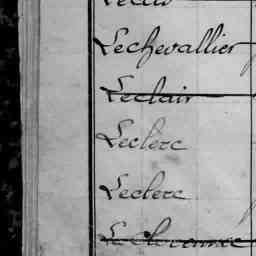 Lechevallier
Leclair
Leclerc
Leclerc